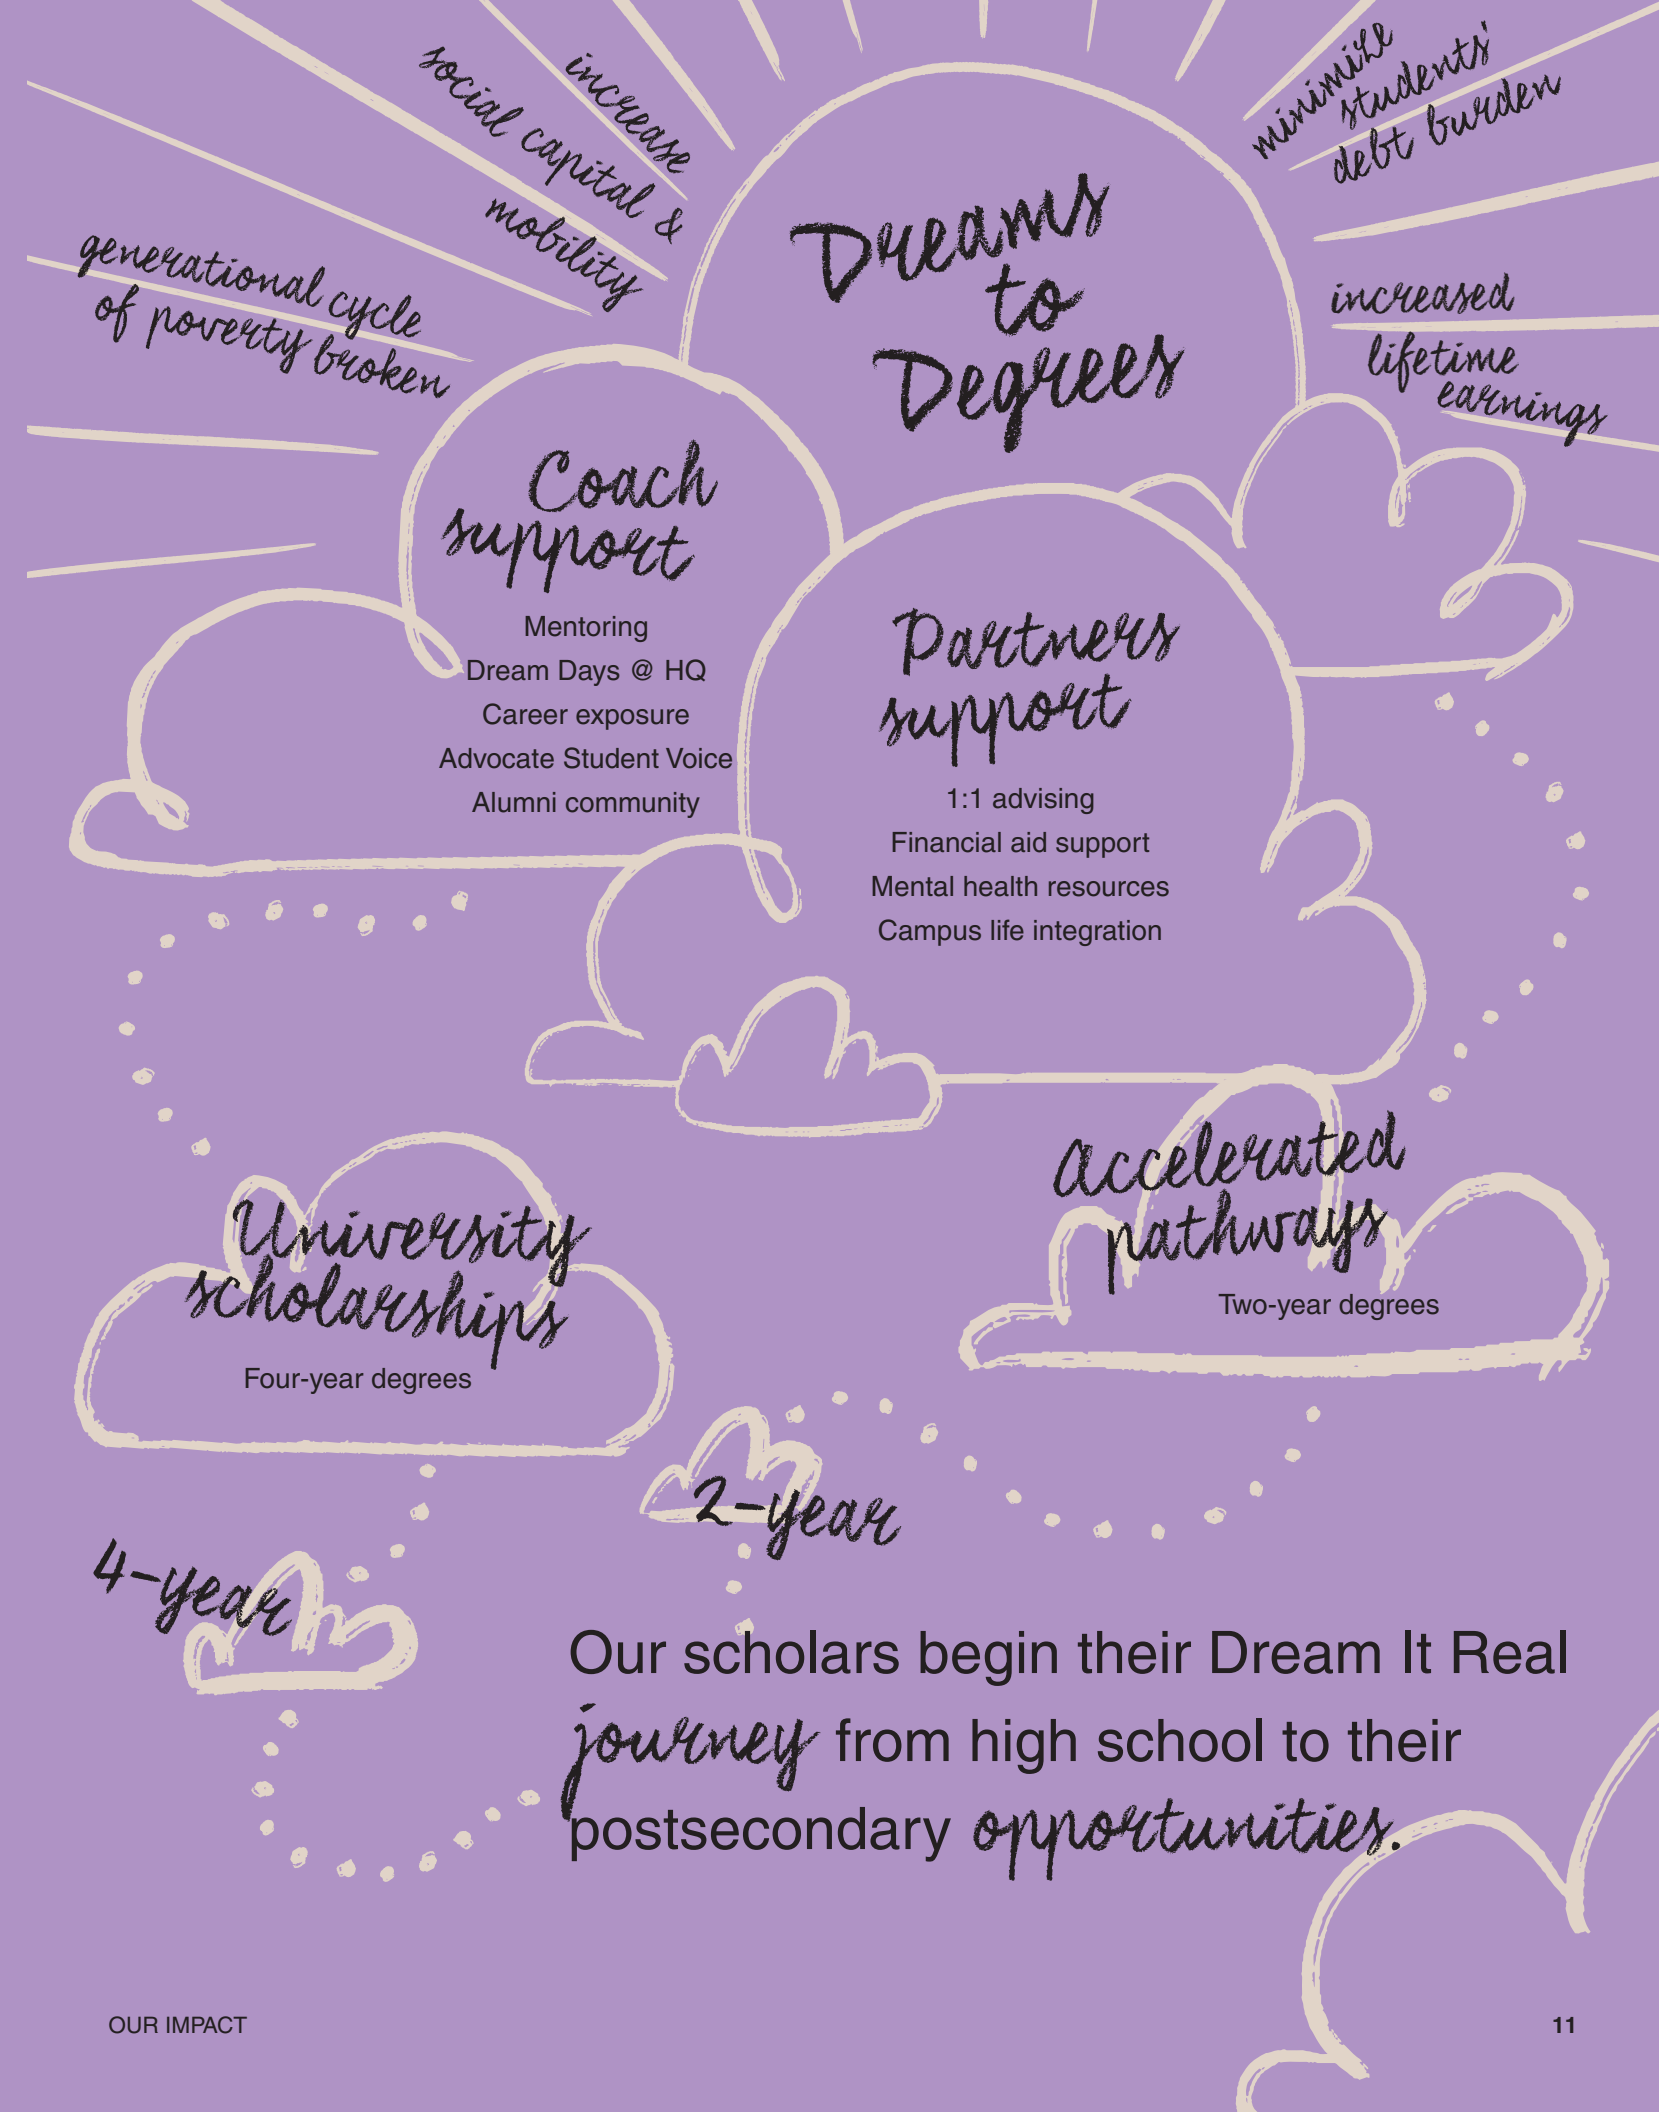 increase
social capital &
mobility
minimize
students'
debt burden
generational cycle
of poverty broken
increased
lifetime
earnings
Dreams
to
Degrees
Coach
support
Mentoring
Dream Days @ HQ
Career exposure
Advocate Student Voice
Alumni community
Partners
support
1:1 advising
Financial aid support
Mental health resources
Campus life integration
University
scholarships
Four-year degrees
Accelerated
pathways
Two-year degrees
2-year
4-year
Our scholars begin their Dream It Real
journey from high school to their
postsecondary opportunities.
OUR IMPACT
11